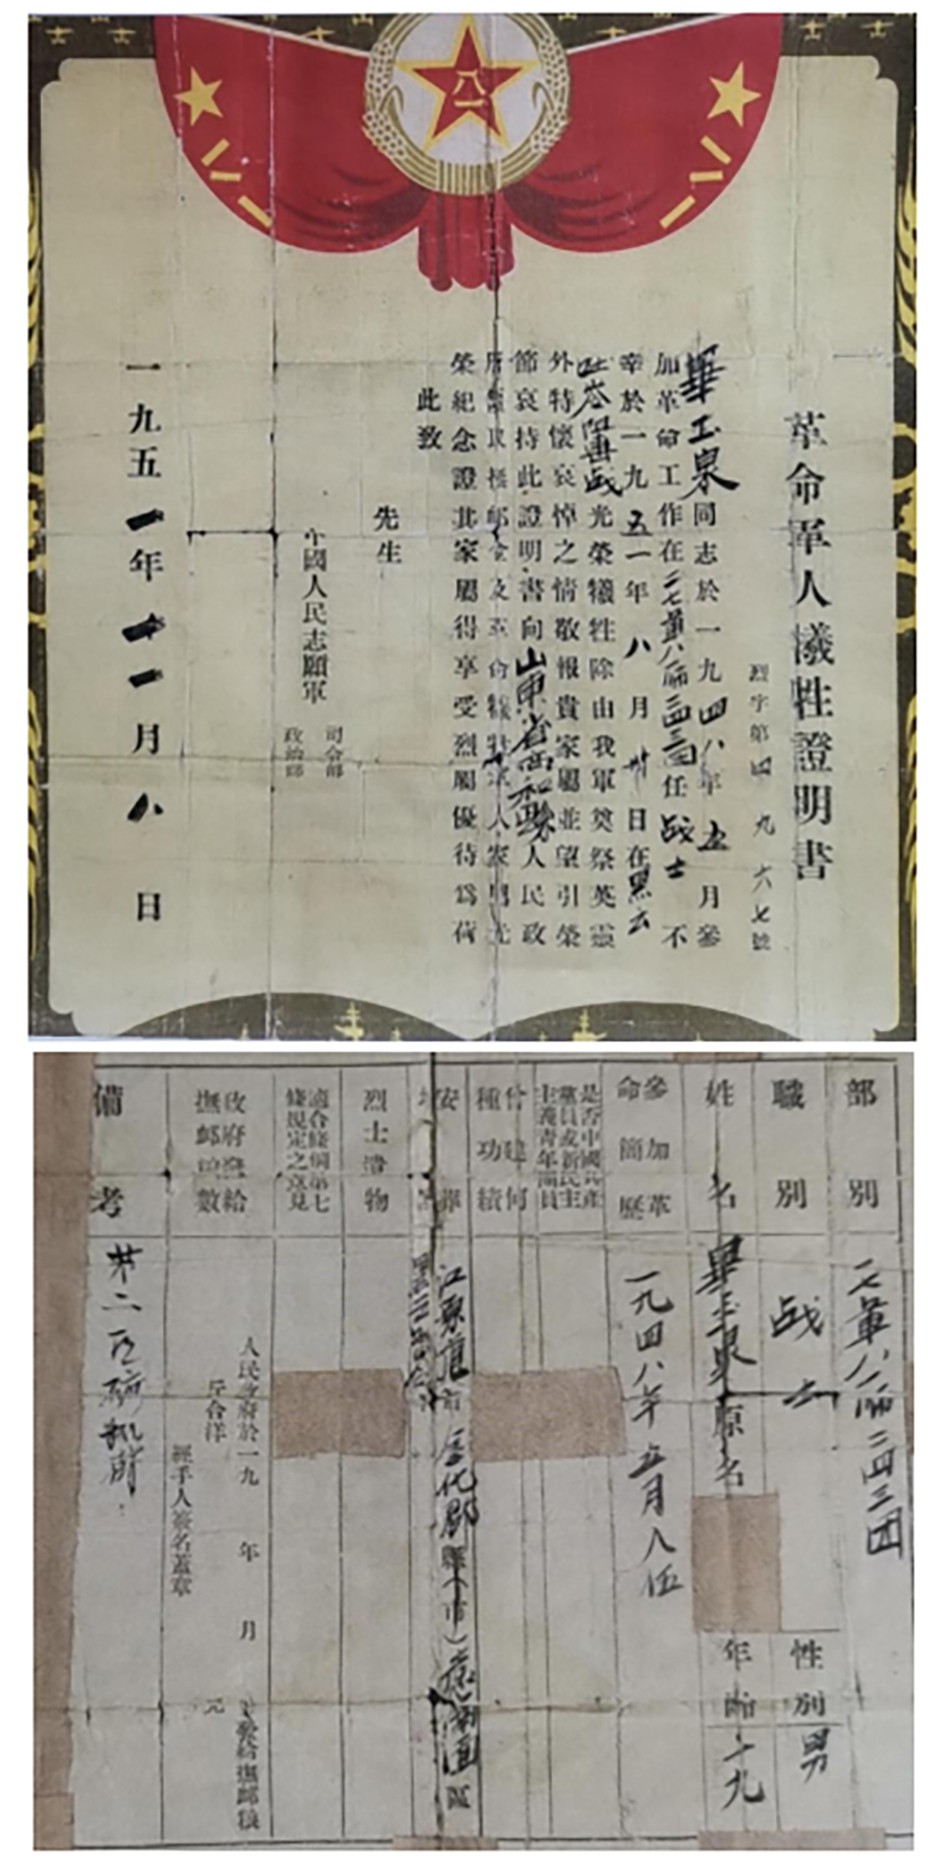 八一
革命軍人犧牲證明書
烈字第四九六七號
畢玉泉同志於一九四八年五月參
加革命工作在二七軍八一師二四三团任战士不
幸於一九五一年八月卅日在黑云
吐岺阻击战光榮犧牲除由我軍奠祭英靈
外特懷哀悼之情敬報貴家屬並望引榮
節哀持此證明書向山東省西和縣人民政
府領取撫卹金及革命犧牲軍人家屬光
榮紀念證其家屬得享受烈屬優待爲荷
此致
先生
中國人民志願軍
司令部
政治部
一九五一年十一月八日
部別 二七軍八一師二四三团
職別 战士 性別 男
姓名 畢玉泉 原名 年齡 十九
參加革命簡歷 一九四八年五月入伍
是否中國共產黨員或新民主主義青年團員
曾建何種功績
安葬地 江原道 市 縣(市) 區
烈士遺物
適合條例第七條規定之意見
政府發給撫卹糧數 人民政府於一九 年 月 發給撫卹糧
斤合洋 元
經手人簽名蓋章
備考 廿二区